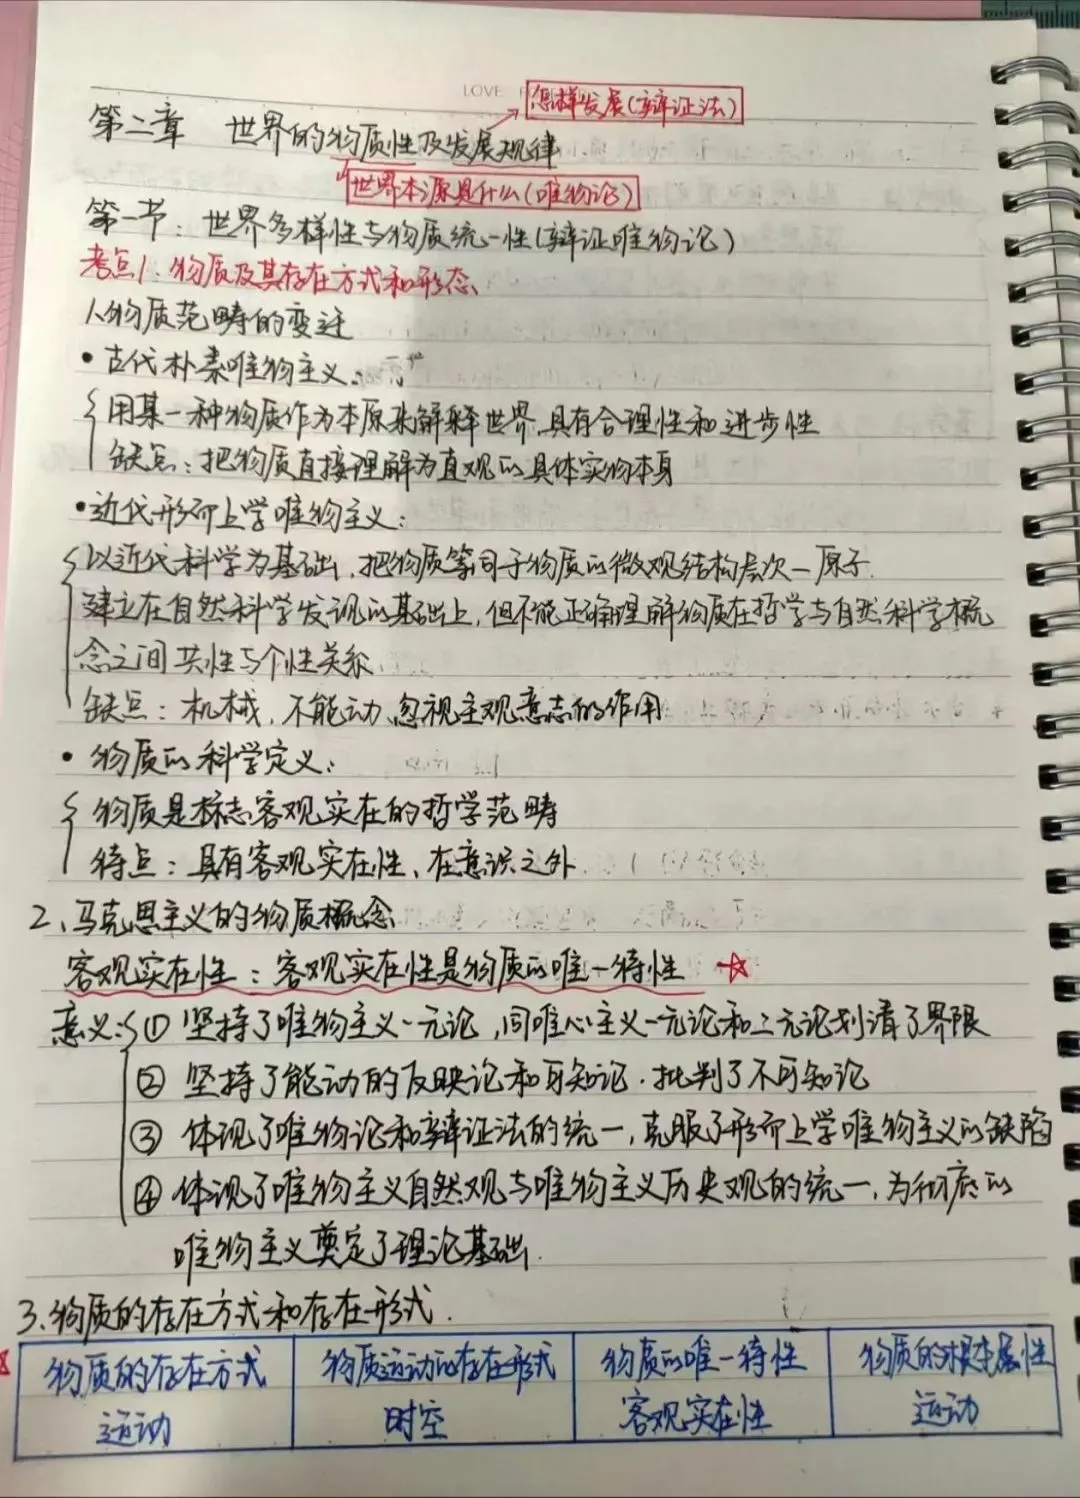 LOVE
怎样发展(辩证法)
第二章 世界的物质性及发展规律
世界本源是什么(唯物论)
第一节:世界多样性与物质统一性(辩证唯物论)
考点1:物质及其存在方式和形态
1、物质范畴的变迁
•古代朴素唯物主义:
用某一种物质作为本原来解释世界,具有合理性和进步性
缺点:把物质直接理解为直观的具体实物本身
•近代形而上学唯物主义:
以近代科学为基础,把物质等同于物质的微观结构层次一原子.
建立在自然科学发现的基础上,但不能正确理解物质在哲学与自然科学概
念之间共性与个性关系
缺点:机械,不能动,忽视主观意志的作用
•物质的科学定义:
物质是标志客观实在的哲学范畴
特点:具有客观实在性,在意识之外
2、马克思主义的物质概念
客观实在性:客观实在性是物质的唯一特性 ☆
意义:① 坚持了唯物主义一元论,同唯心主义一元论和二元论划清了界限
② 坚持了能动的反映论和可知论.批判了不可知论
③ 体现了唯物论和辩证法的统一,克服了形而上学唯物主义的缺陷
④ 体现了唯物主义自然观与唯物主义历史观的统一,为彻底的
唯物主义奠定了理论基础.
3、物质的存在方式和存在形式.
物质的存在方式 物质运动的存在形式 物质的唯一特性 物质的根本属性
运动 时空 客观实在性 运动